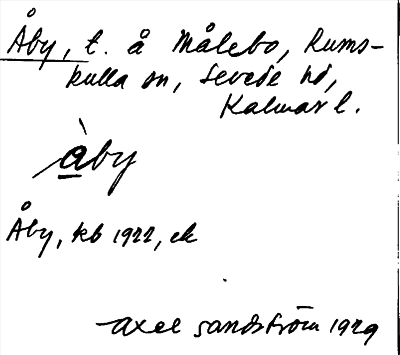 Åby, t. å Målebo, Rums-
kulla sn, Sevede hd,
Kalmar l.
àby
Åby, kb 1922, ek
Axel Sandström 1929